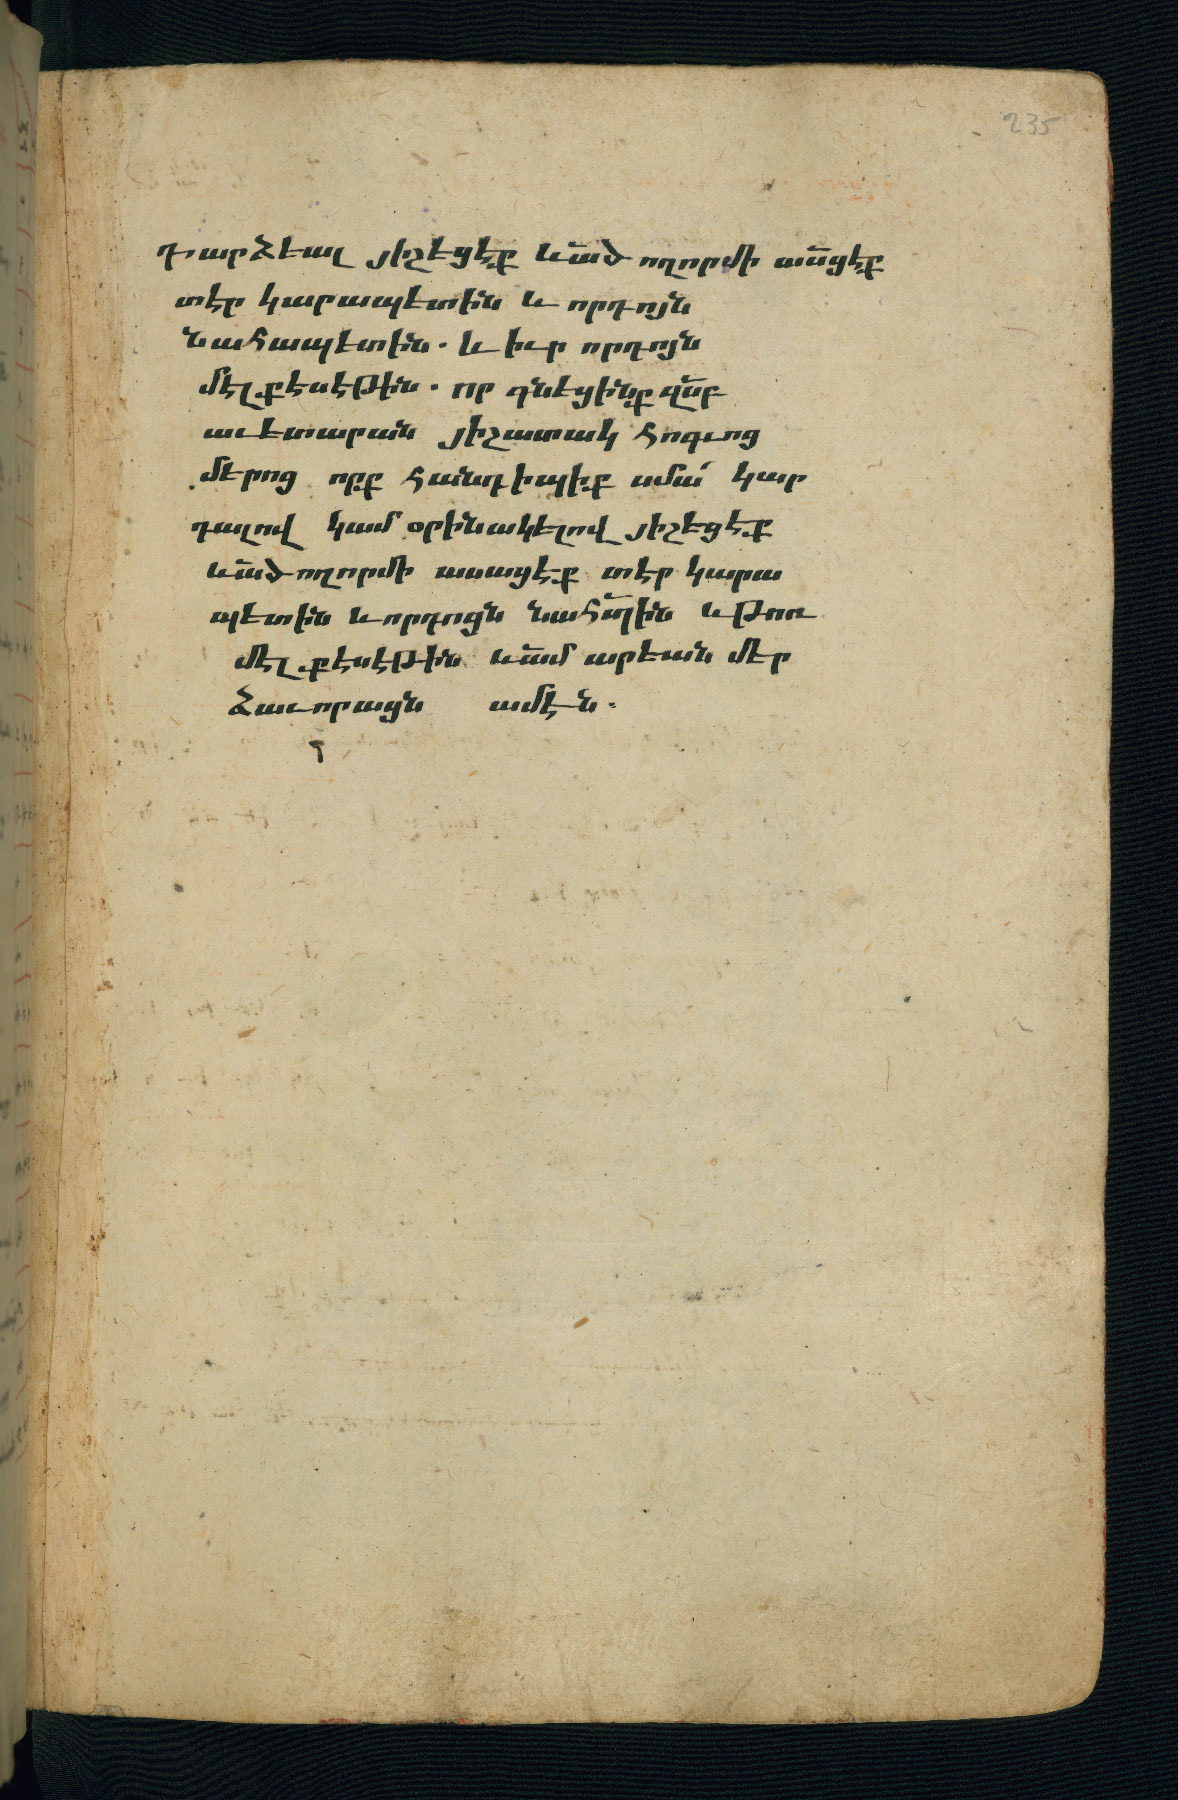 235
դարձեալ յիշեցէք և ա̅ծ ողորմի ա̅սցէք
տէր կարապետին և որդոյն
նահապետին. և իւր որդոյն
մէլքէսէթին. որ գնեցինք զս̅բ
աւետարան յիշատակ հոգւոց
մերոց որք հանդիպիք սմա՛ կար
դալով կամ օրինակելով յիշեցէք
և ա̅ծ ողորմի ասացէք տէր կարա
պետին և որդոցն նահ̅պին և թոռ
մէլքէսէթին և ա̅մ արեան մեր
ձաւորացն ամէն.